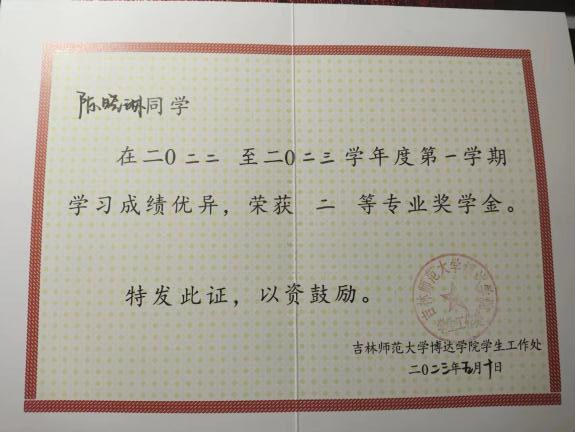 陈晓琳同学
在二〇二二至二〇二三学年度第一学期
学习成绩优异，荣获 二 等专业奖学金。
特发此证，以资鼓励。
吉林师范大学博达学院学生工作处
二〇二三年五月十日